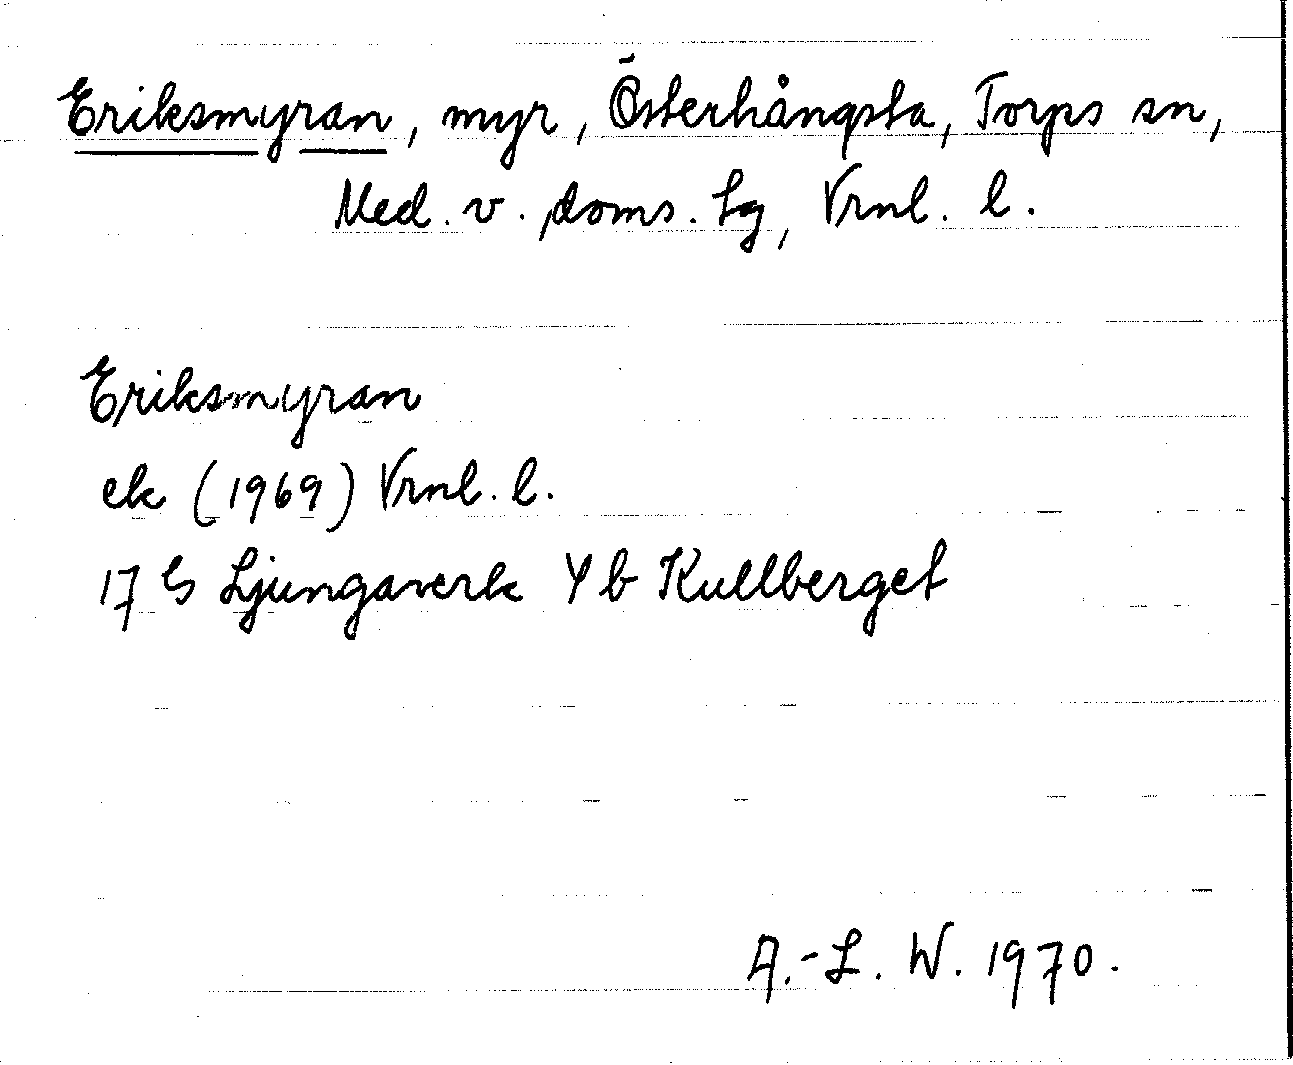 Eriksmyran, myr, Österhångsta, Torps sn,
Med. v. doms. lg, Vrnl. l.
Eriksmyran
ek (1969) Vrnl. l.
17 G Ljungaverk 4 b Kullberget
A.-L. W. 1970.